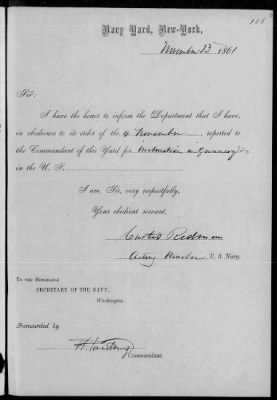 108
Navy Yard, New-York,
November 13 1861
Sir:
I have the honor to inform the Department that I have,
in obedience to its order of the 4 November, reported
to the Commandant of this Yard for Instruction in Gunnery
in the U. S.
I am, Sir, very respectfully,
Your obedient servant,
Curtis Redmon
Acting Master U. S. Navy.
TO THE HONORABLE
SECRETARY OF THE NAVY,
Washington.
Forwarded by
Commandant.